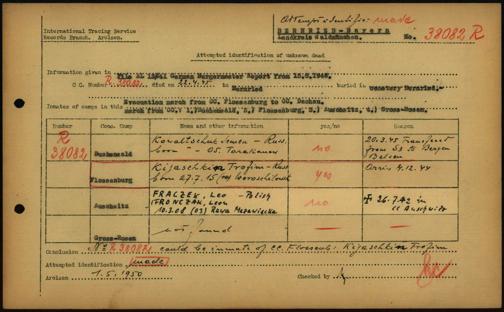 International Tracing Service
Records Branch. Arolsen.
Attempt identific: made
BERNRIED-Bavaria
Landkreis Waldmünchen.
No. 38082 R
Attempted identification of unknown dead
Information given in German Burgermaster Report from
C C. Number R 38082 died 22.4.45 in Bernried buried in cemetery Bernried.
Evacuation march from CC. Flossenburg to CC. Dachau.
Inmates of camps in this march from CC. 1, Buchenwald, 2, Flossenburg, 3, Auschwitz, 4, Gross-Rosen.
Number
Conc. Camp
Name and other information
yes/no
Remarks
R
38082
Buchenwald
Kowaltschuk Semen - Russ.
born - 05. Tarakanow
no
20.3.45 Transferred
from S3 to Bergen
Belsen
Flossenburg
Kijaschkin Trofim - Russ
born 27.7.15 Woroschilowsk
yes
Arriv. 4.12.44
Auschwitz
FRALZEK, Leo - Polish
(FRONCZAK, Leon
10.3.08 (03) Rawa Mazowiecka
no
26.7.42 in
CC Auschwitz
Gross-Rosen
not found
Conclusion No R 38082 could be inmate of CC. Flossenb: Kijaschkin Trofim
Attempted identification: made
Arolsen 1.5.1950
Checked by